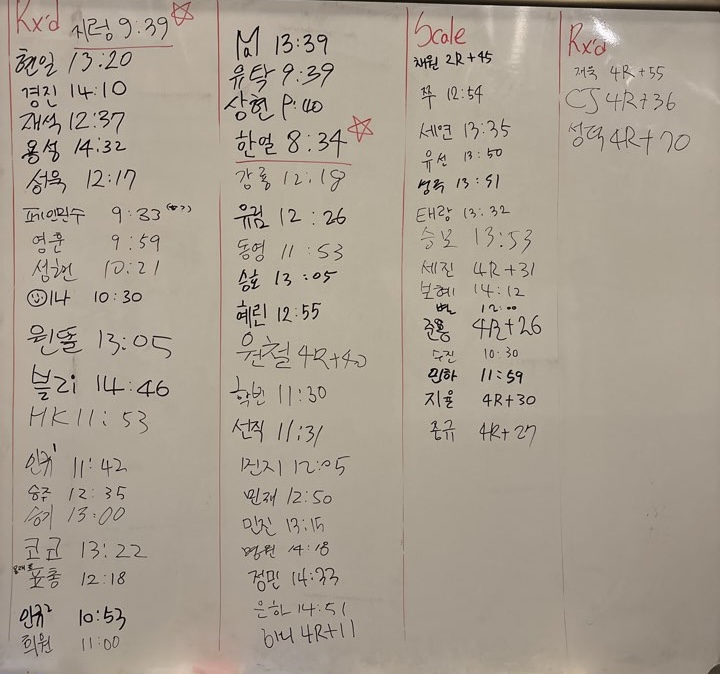 Rx'd 지렁 9:39
현일 13:20
경진 14:10
재석 12:37
용성 14:32
성욱 12:17
페인민수 9:33
영훈 9:59
섬현 10:21
나 10:30
원똘 13:05
블리 14:46
HK 11:53
인규1 11:42
승주 12:35
승기 13:00
코코 13:22
표총 12:18
인규2 10:53
희원 11:00
13:39
유탁 9:39
상현 9:40
한얼 8:34
강룡 12:18
유림 12:26
동영 11:53
승호 13:05
혜린 12:55
원철 4R+40
학빈 11:30
선직 11:31
민지 12:05
민재 12:50
민진 13:15
명원 14:18
정민 14:33
은하 14:51
하니 4R+11
Scale
채원 2R+45
쭈 12:54
세연 13:35
유선 13:50
13:51
태랑 13:32
승보 13:53
세진 4R+31
보혜 14:12
별 12:00
준홍 4R+26
수진 10:30
민하 11:59
지율 4R+30
종규 4R+27
Rx'd
4R+55
CJ 4R+36
성덕 4R+70